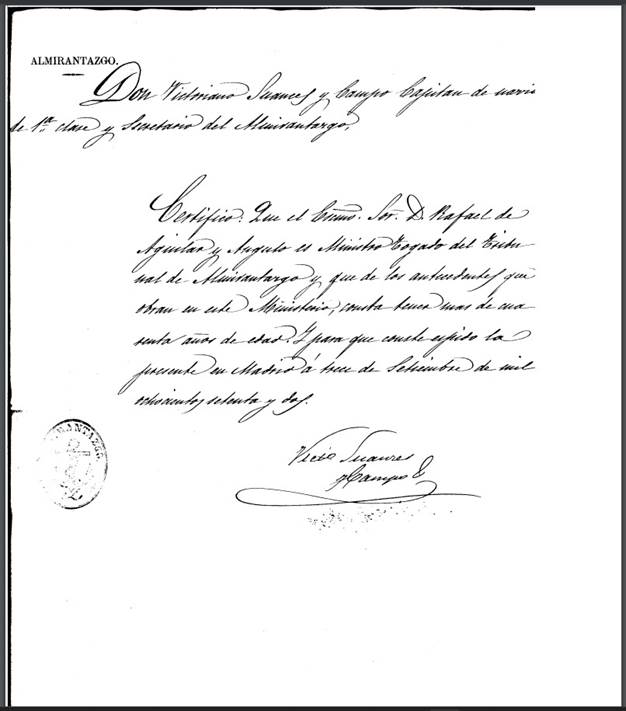 ALMIRANTAZGO.
Don Victoriano Suances y Campo Capitan de navio
de 1ª clase y Secretario del Almirantazgo,
Certifico: Que el Excmo. Sor. D. Rafael de
Aguilar y Angulo es Ministro Togado del Tribu
nal de Almirantazgo y que de los antecedentes que
obran en este Ministerio, consta tener mas de cua
renta años de edad. Y para que conste espido la
presente en Madrid á trece de Setiembre de mil
ochocientos setenta y dos.
Victo Suances
y Campo
ALMIRANTAZGO